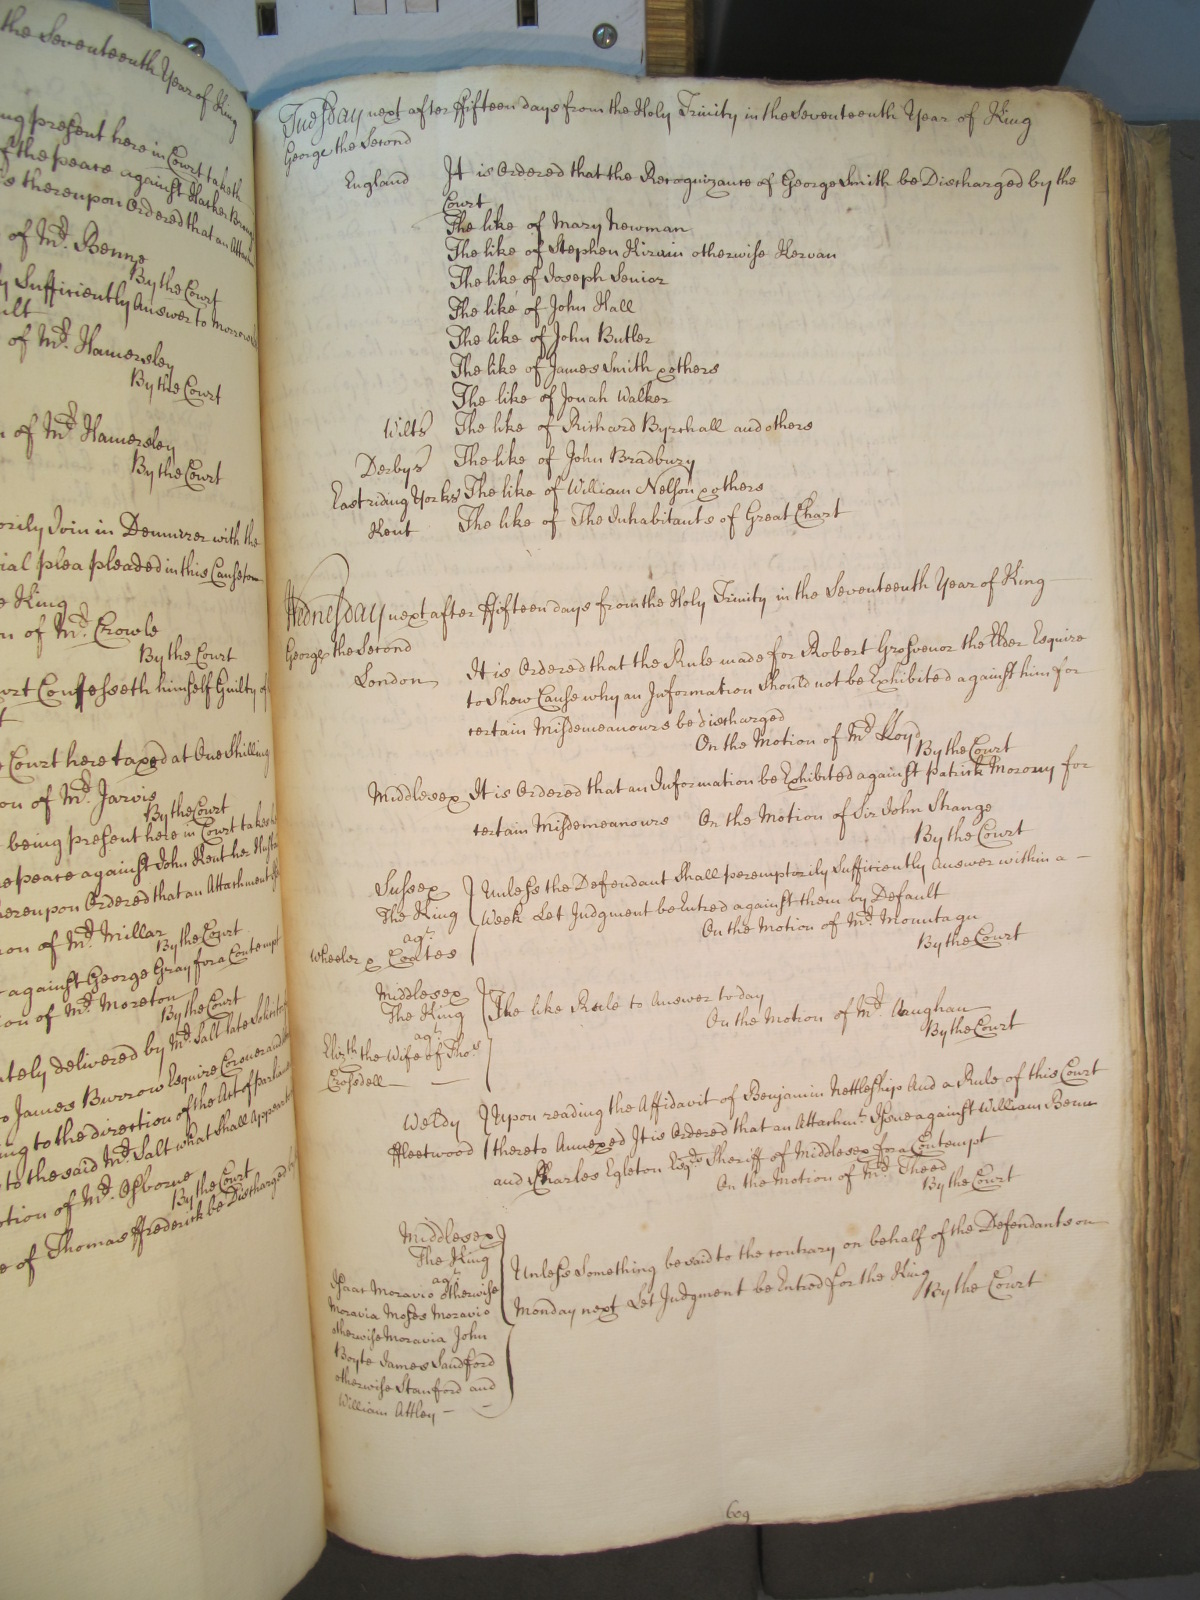 the Seventeenth Year of King
ng present here in Court taketh
of the peace against
is thereupon Ordered that an
of Mr. Benne
By the Court
y Sufficiently Answer to Morrow
ult
of Mr. Hamersley
By the Court
n of Mr. Hamersley
By the Court
orily Join in Demurrer with the
ial plea pleaded in this Cause
e King
n of Mr. Crowle
By the Court
ourt Confesseth himself Guilty of
t
e Court here taxed at One Shilling
on of Mr. Jarvis
By the Court
being present here in Court takes
e peace against John Kent her
hereupon Ordered that an Attachment
ion of Mr. Millar
By the Court
against George Gray for a Contempt
ion of Mr. Moreton
By the Court
ately delivered by Mr. Salt late
o James Burrow Esquire Coroner and
ing to the direction of the Act of parliam
to the said Mr. Salt what shall Appear
otion of Mr. Osborne
By the Court
e of Thomas Frederick be Discharged
Tuesday next after ffifteen days from the Holy Trinity in the Seventeenth Year of King
George the Second
England It is Ordered that the Recognizance of George Smith be Discharged by the
Court
The like of Mary Newman
The like of Stephen Kirwin otherwise Kervan
The like of Joseph Senior
The like of John Hall
The like of John Butler
The like of James Smith & others
The like of Jonah Walker
Wilts The like of Richard Byrchall and others
Derbys The like of John Bradbury
East riding Yorkes The like of William Nelson & others
Kent The like of The Inhabitants of Great Chart
Wednesday next after ffifteen days from the Holy Trinity in the Seventeenth Year of King
George the Second
London It is Ordered that the Rule made for Robert Grosvenor the Elder Esquire
to Shew Cause why an Information Should not be Exhibited against him for
certain Misdemeanours be discharged
On the Motion of Mr. Lloyd
By the Court
Middlesex It is Ordered that an Information be Exhibited against Patrick Morony for
certain Misdemeanours On the Motion of Sir John Strange
By the Court
Sussex Unless the Defendant Shall peremptorily Sufficiently Answer within a
The King Week Let Judgment be Entred against them by Default
agt. On the Motion of Mr. Mountagu
Wheeler & Coates By the Court
Middlesex
The King The like Rule to Answer to day
agt. On the Motion of Mr. Vaughan
Elizth. the Wife of Thos. By the Court
Crossdell
Weldy Upon reading the Affidavit of Benjamin Nettleship And a Rule of this Court
ffleetwood thereto Annexed It is Ordered that an Attachmt. Issue against William Benn
and Charles Egleton Esqrs. Sheriff of Middlesex for a Contempt
On the Motion of Mr. Theed
By the Court
Middlesex
The King Unless Something be said to the contrary on behalf of the Defendants on
agt.
Isaac Moravio otherwise Monday next Let Judgment be Entred for the King
Moravia Moses Moravio By the Court
otherwise Moravia John
Boyte James Sandford
otherwise Stanford and
William Attley
609